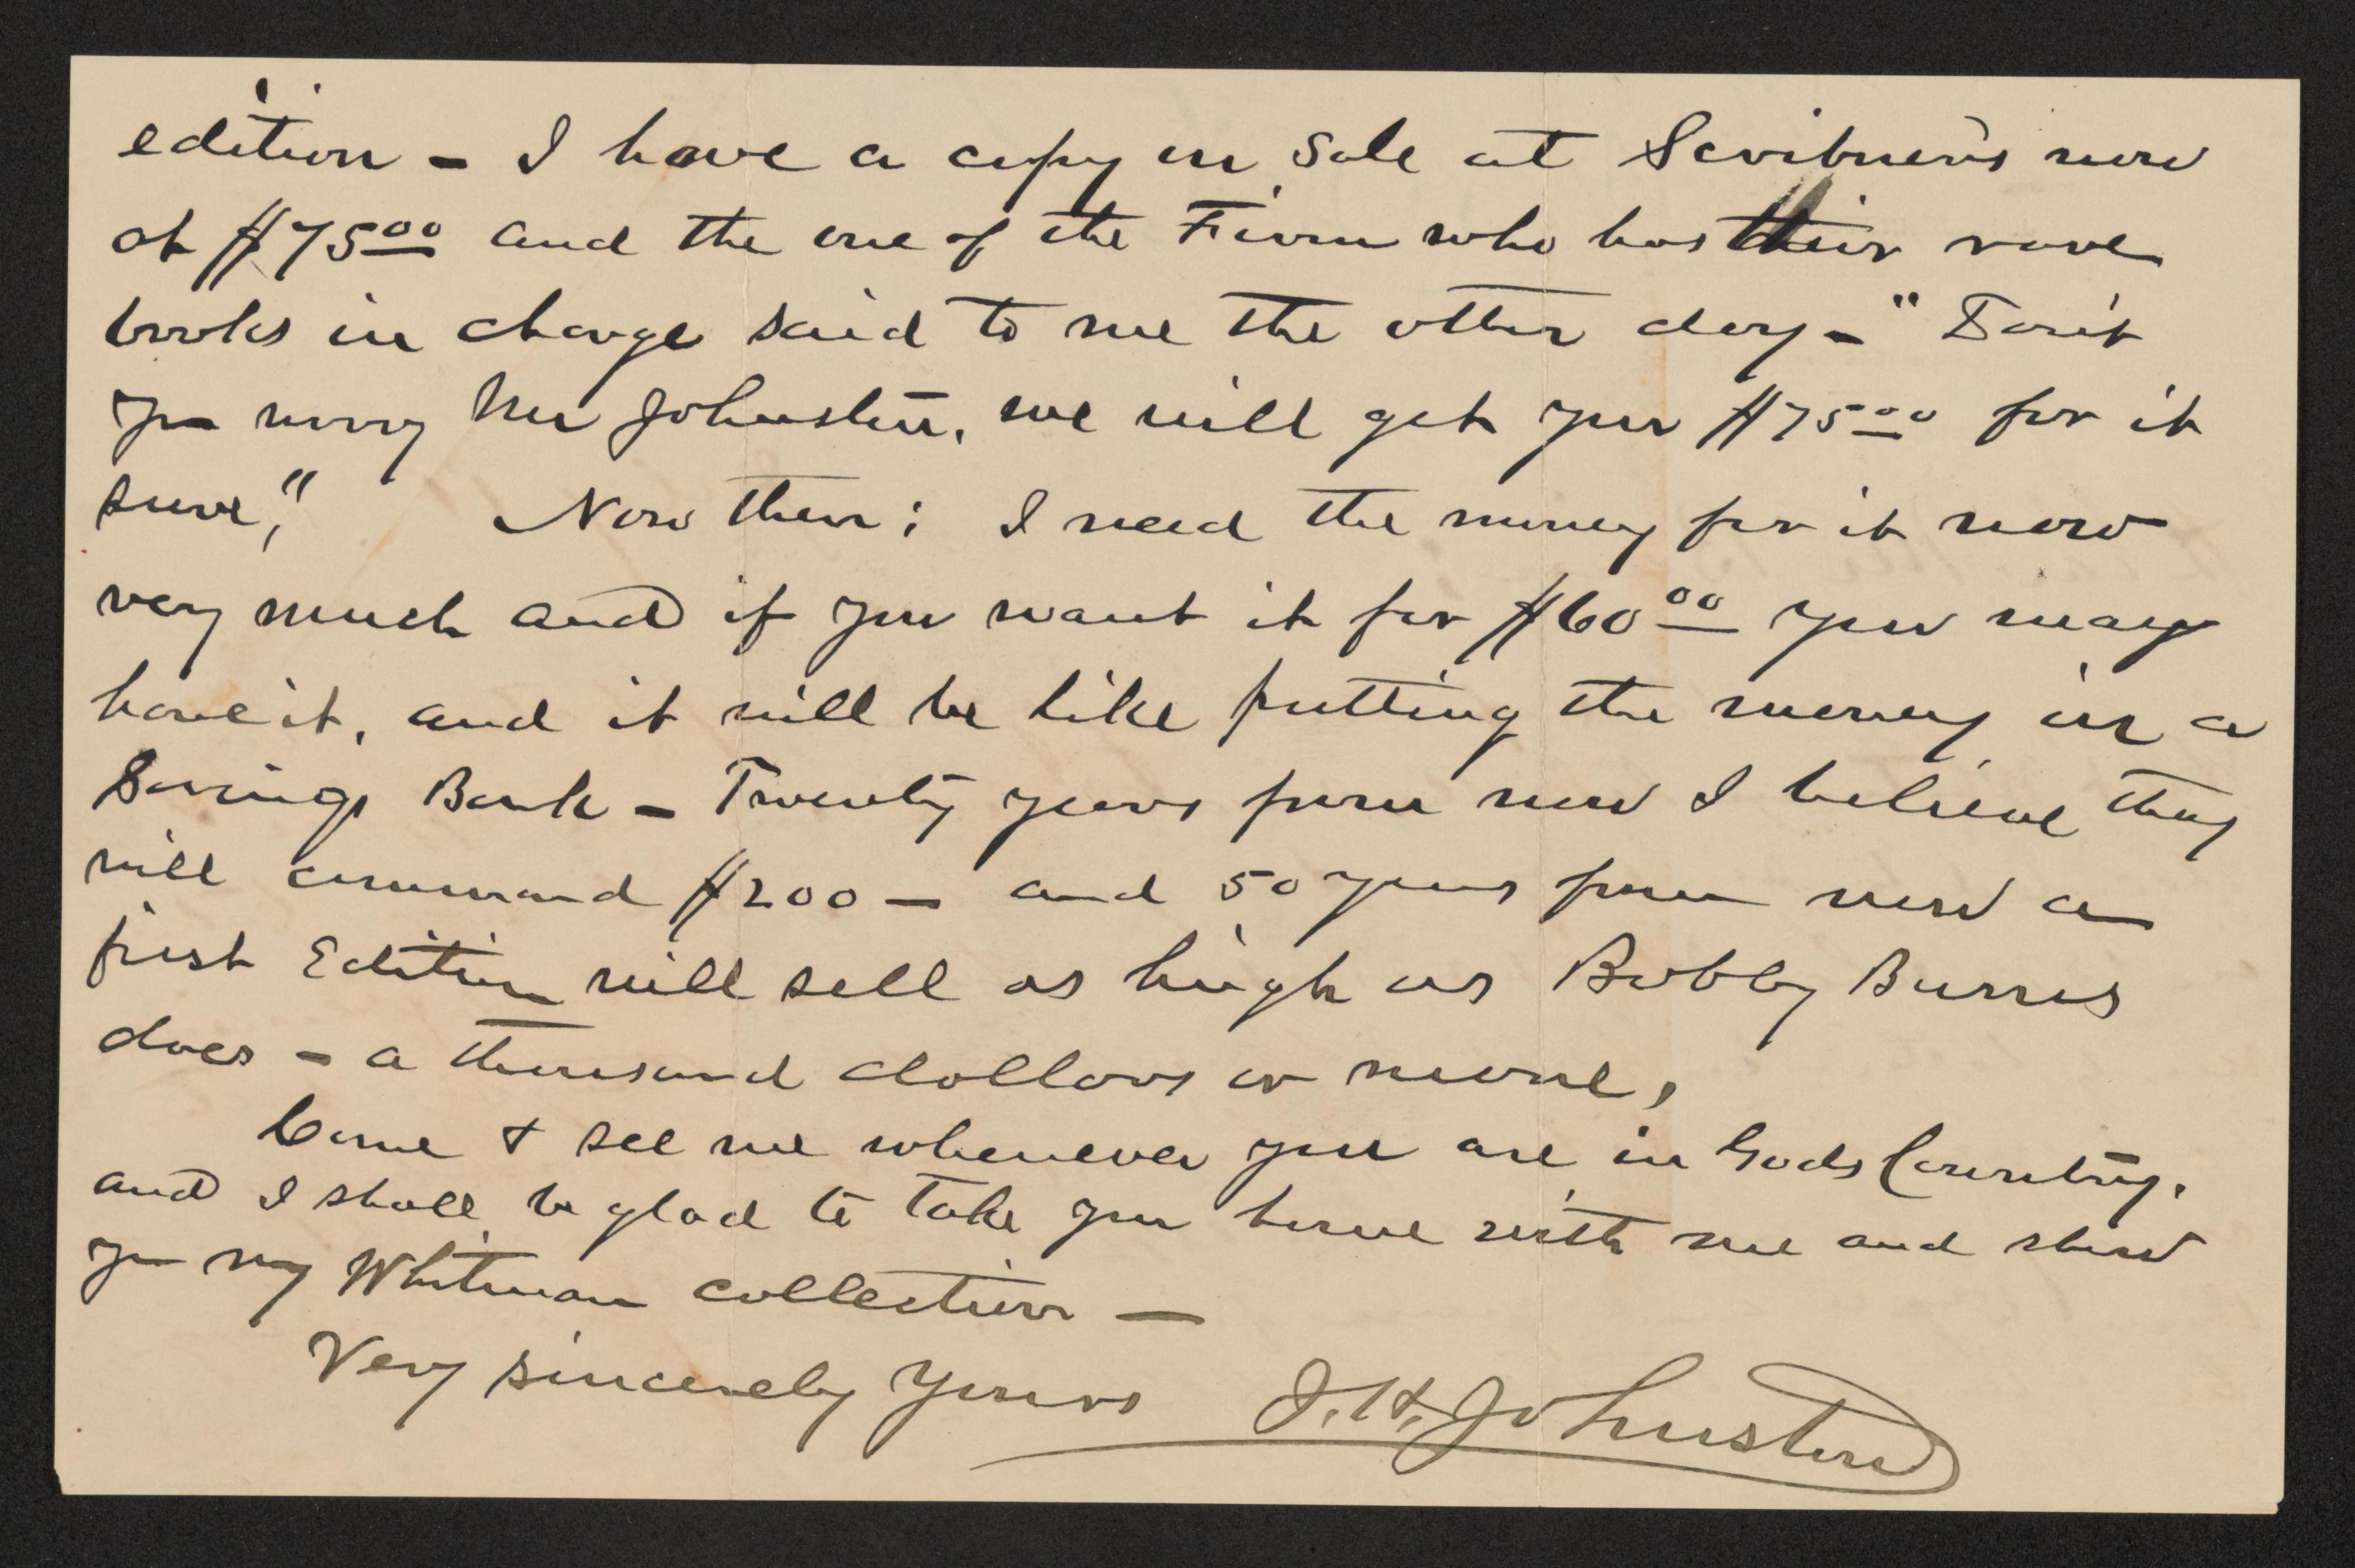 edition - I have a copy on sale at Scribner's now
at $75.00 and the one of the Firm who has their rare
books in charge said to me the other day - "Don't
you worry Mr Johnston, we will get your $75.00 for it
sure,"  Now then; I need the money for it now
very much and if you want it for $60.00 you may
have it, and it will be like putting the money in a
Savings Bank - Twenty years from now I believe they
will command $200 - and 50 years from now a
first Edition will sell as high as Bobby Burns
does - a thousand dollars or more,
Come & see me whenever you are in Gods Country,
and I shall be glad to take you home with me and show
you my Whitman collection -
Very sincerely Yours J. H. Johnston